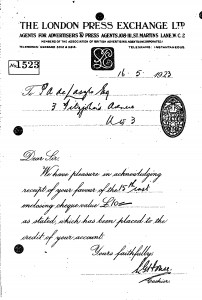 THE LONDON PRESS EXCHANGE LTD
AGENTS FOR ADVERTISERS & PRESS AGENTS, 108-111, ST. MARTINS LANE, W.C.2
MEMBERS OF THE ASSOCIATION OF BRITISH ADVERTISING AGENTS (INCORPORATED)
TELEGRAMS: INSTANTANEOUS.
No 1523
16 . 5 . 1923
To
3
N W 3
Dear Sir:
We have pleasure in acknowledging
receipt of your favour of the 15th inst
enclosing cheque value £10
as stated, which has been placed to the
credit of your account.
Yours faithfully:
Cashier.